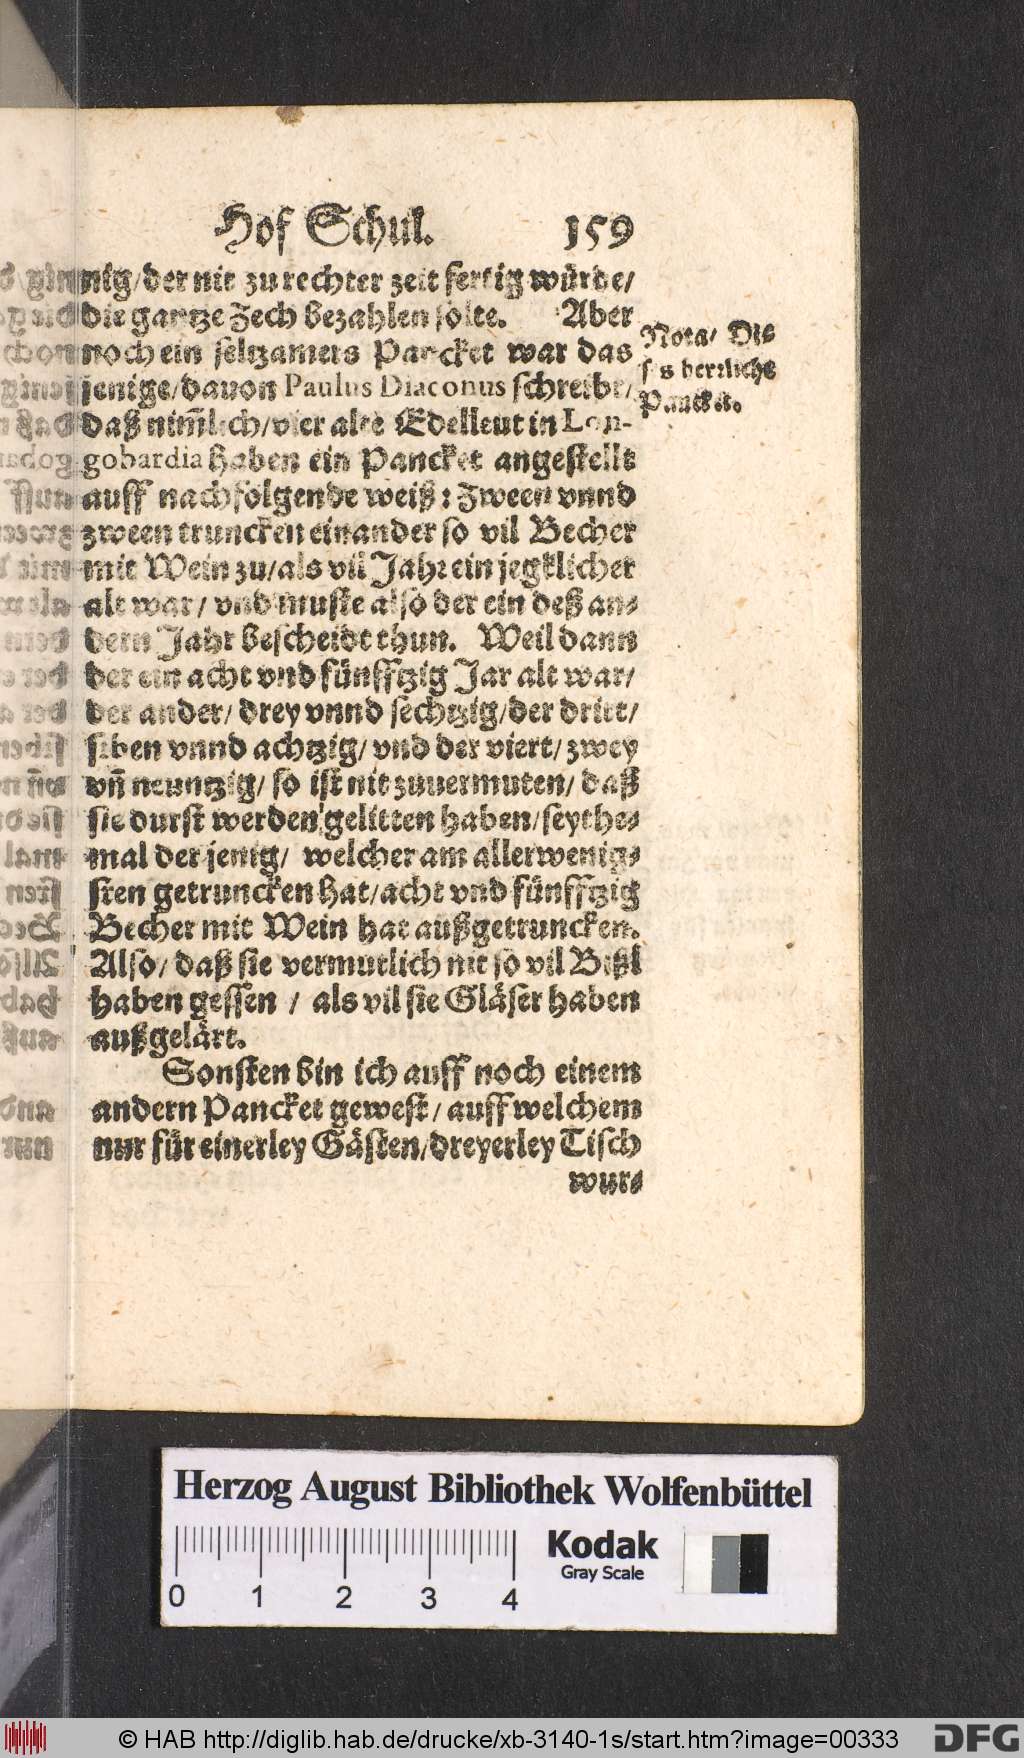 Hof Schul. 159
nig/der nit zu rechter zeit fertig würde/
die gantze Zech bezahlen solte. Aber
noch ein seltzamers Pancket war das
jenige/dauon Paulus Diaconus schreibt/
daß nim̃lich/vier alte Edelleut in Lon-
gobardia haben ein Pancket angestellt
auff nachfolgende weiß: Zween vnnd
zween truncken einander so vil Becher
mit Wein zu/als vil Jahr ein jegklicher
alt war/ vnd muste also der ein deß an-
dern Jahr bescheidt thun. Weil dann
der ein acht vnd fünfftzig Jar alt war/
der ander/ drey vnnd sechtzig/der dritt/
siben vnnd achtzig/ vnd der viert/ zwey
vñ neuntzig/ so ist nit zuuermuten/ daß
sie durst werden gelitten haben/seythe-
mal der jenig/ welcher am allerwenig-
sten getruncken hat/acht vnd fünfftzig
Becher mit Wein hat außgetruncken.
Also/ daß sie vermutlich nit so vil Bißl
haben gessen / als vil sie Gläser haben
außgelärt.
Sonsten bin ich auff noch einem
andern Pancket gewest/ auff welchem
nur für einerley Gästen/dreyerley Tisch
wur-
Nota/ Dis-
ses herrliche
Pancket.
Herzog August Bibliothek Wolfenbüttel
Kodak
Gray Scale
0 1 2 3 4
© HAB http://diglib.hab.de/drucke/xb-3140-1s/start.htm?image=00333
DFG